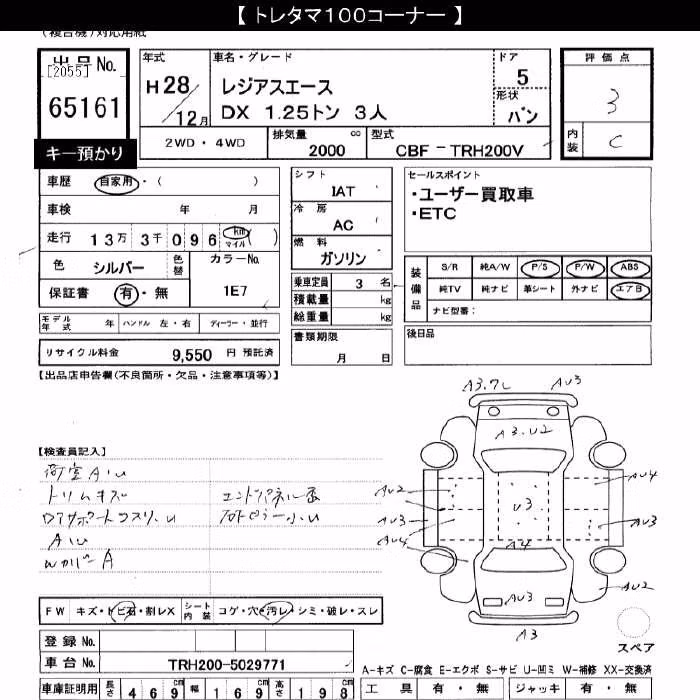 【 トレタマ100コーナー 】
(複合機)対応用紙
出品No.
[2055]
65161
キー預かり
年式
H28/12月
車名・グレード
レジアスエース
DX 1.25トン 3人
ドア
5
形状
バン
2WD・4WD
排気量 cc
2000
型式
CBF－TRH200V
評価点
3
内装
C
車歴 自家用・( )
車検 年 月
走行 13万3千096 km マイル ( )
色 シルバー
色替
カラーNo.
1E7
保証書 有・無
モデル年式 年 ハンドル 左・右 ディーラー・並行
リサイクル料金 9,550 円 預託済
シフト
IAT
冷房
AC
燃料
ガソリン
乗車定員 3 名
積載量 kg
総重量 kg
書類期限
月 日
セールスポイント
・ユーザー買取車
・ETC
装備品
S/R 純A/W P/S P/W ABS
純TV 純ナビ 革シート 外ナビ エアB
ナビ型番：
後日品
【出品店申告欄(不良箇所・欠品・注意事項等)】
【検査員記入】
荷室AU
トリムキズ
AU
A3.7L
AU3
A3.U2
AU2
AU3
AU4
U3
A4
AU4
AU3
AU2
AU3
A3
FW キズ・トビ石・割レX
シート内装 コゲ・穴・汚レ・シミ・破レ・スレ
登録No.
車台No. TRH200-5029771
スペア
A-キズ C-腐食 E-エクボ S-サビ U-凹ミ W-補修 XX-交換済
車庫証明用 長さ 469cm 幅 169cm 高さ 198cm
工具 有・無 ジャッキ 有・無